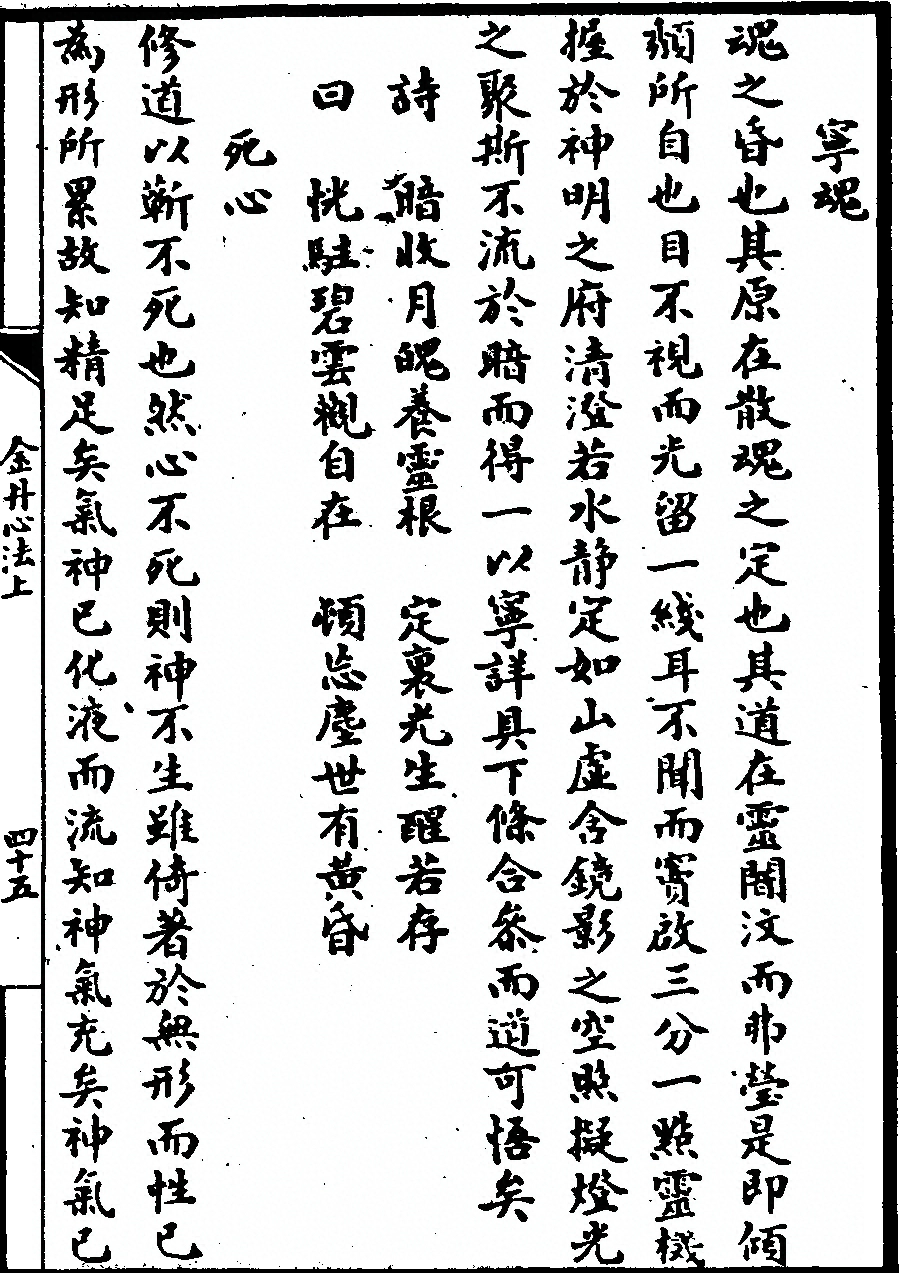 寧魂
魂之昏也其原在散魂之定也其道在靈闇汶而弗瑩是即傾
頹所自也目不視而光留一綫耳不聞而竇啟三分一點靈機
握於神明之府清澄若水靜定如山虛含鏡影之空照擬燈光
之聚斯不流於暗而得一以寧詳具下條合叅而道可悟矣
詩　暗收月魄養靈根　定裏光生醒若存
曰　恍駐碧雲觀自在　頓忘塵世有黃昏
死心
修道以蘄不死也然心不死則神不生雖倚著於無形而性已
為形所累故知精足矣氣神已化液而流知神氣充矣神氣已
金丹心法上
四十五